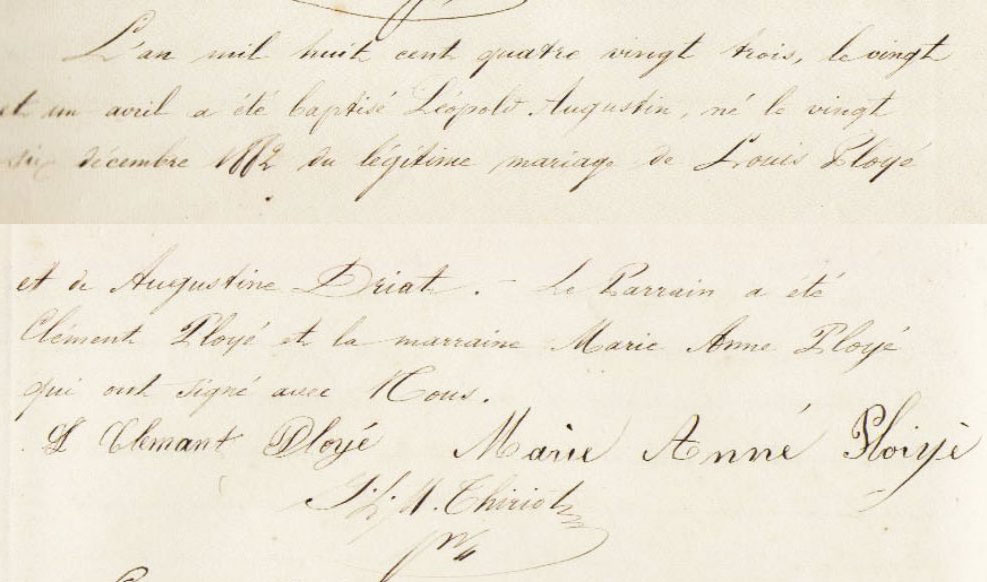 L'an mil huit cent quatre vingt trois, le vingt
et un avril a été baptisé Léopold Augustin, né le vingt
six décembre 1882 du légitime mariage de Louis Ployé
et de Augustine Driat. - Le Parrain a été
Clément Ployé et la marraine Marie Anne Ployé
qui ont signé avec Nous.
Clemant Ployé Marie Anné Ploiyè
Thiriot